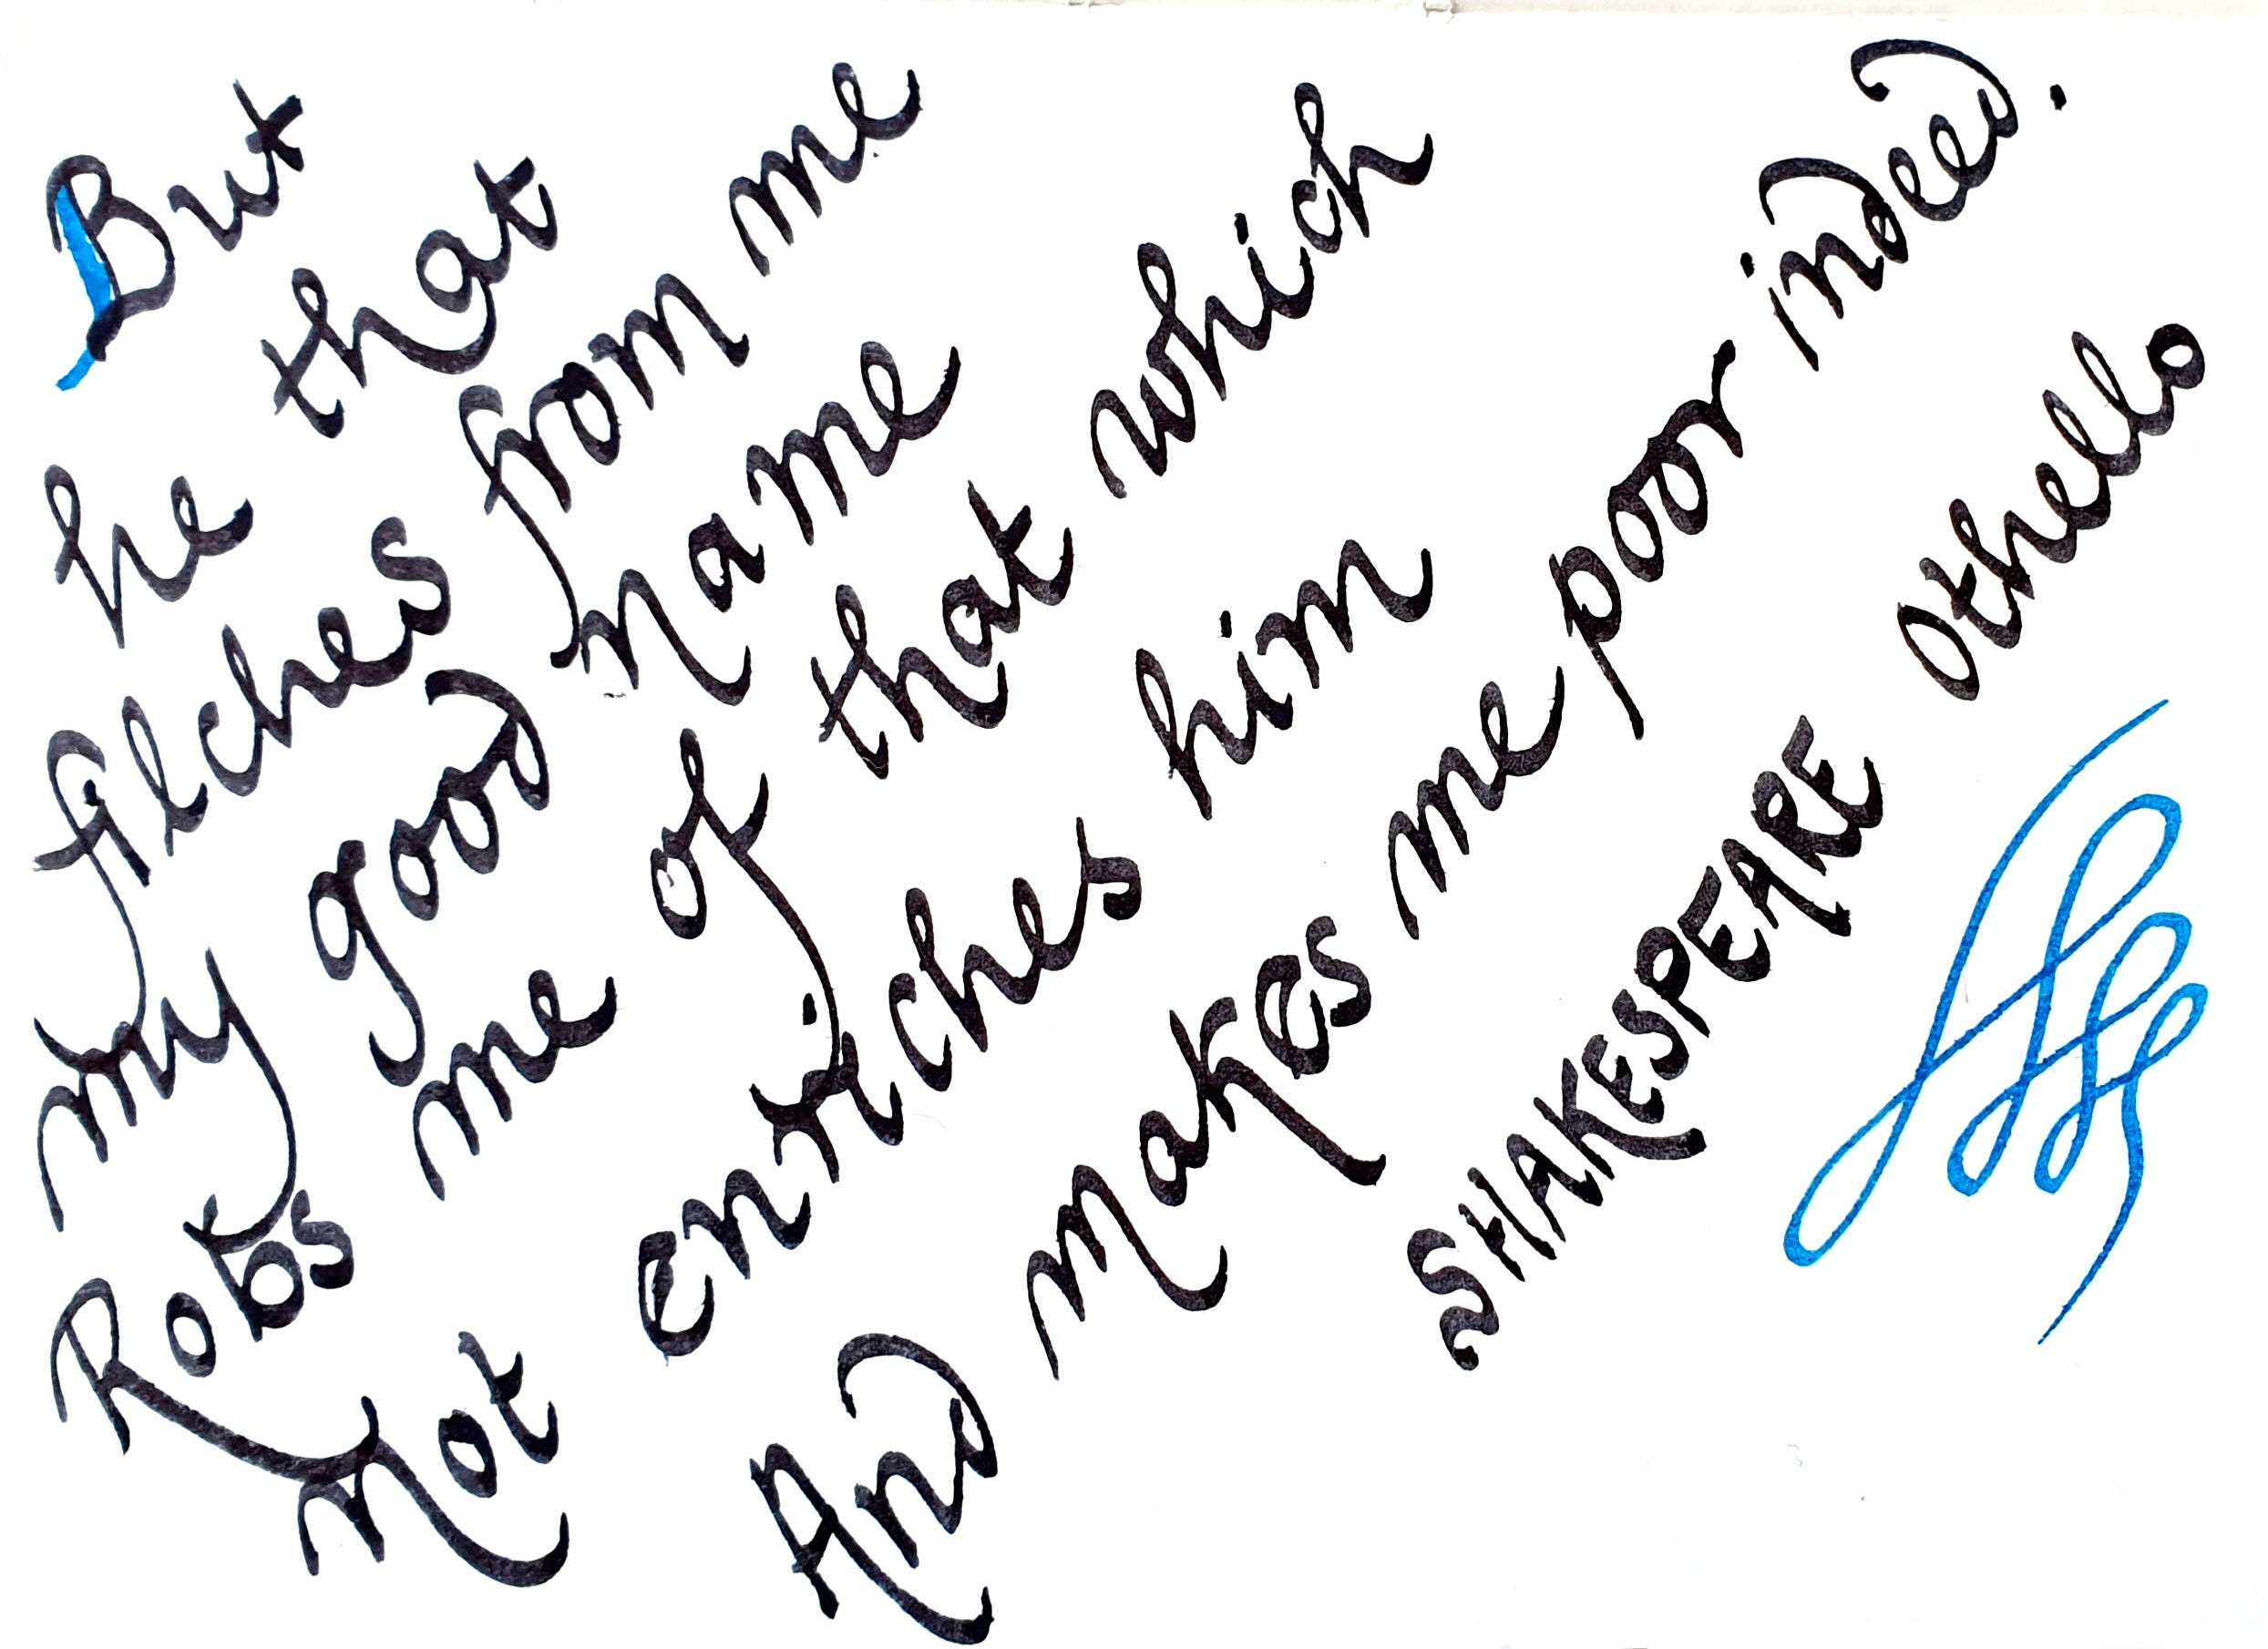 But
he that
filches from me
my good name
Robs me of that which
not enriches him
And makes me poor indeed.
SHAKESPEARE Othello